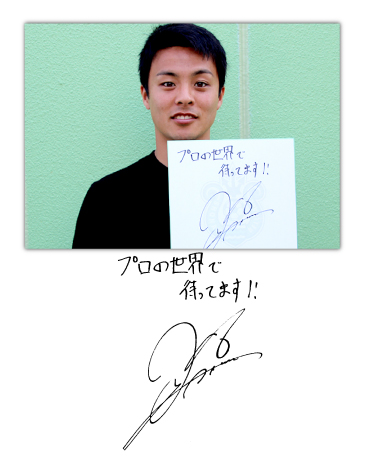 プロの世界で
待ってます!!
プロの世界で
待ってます!!